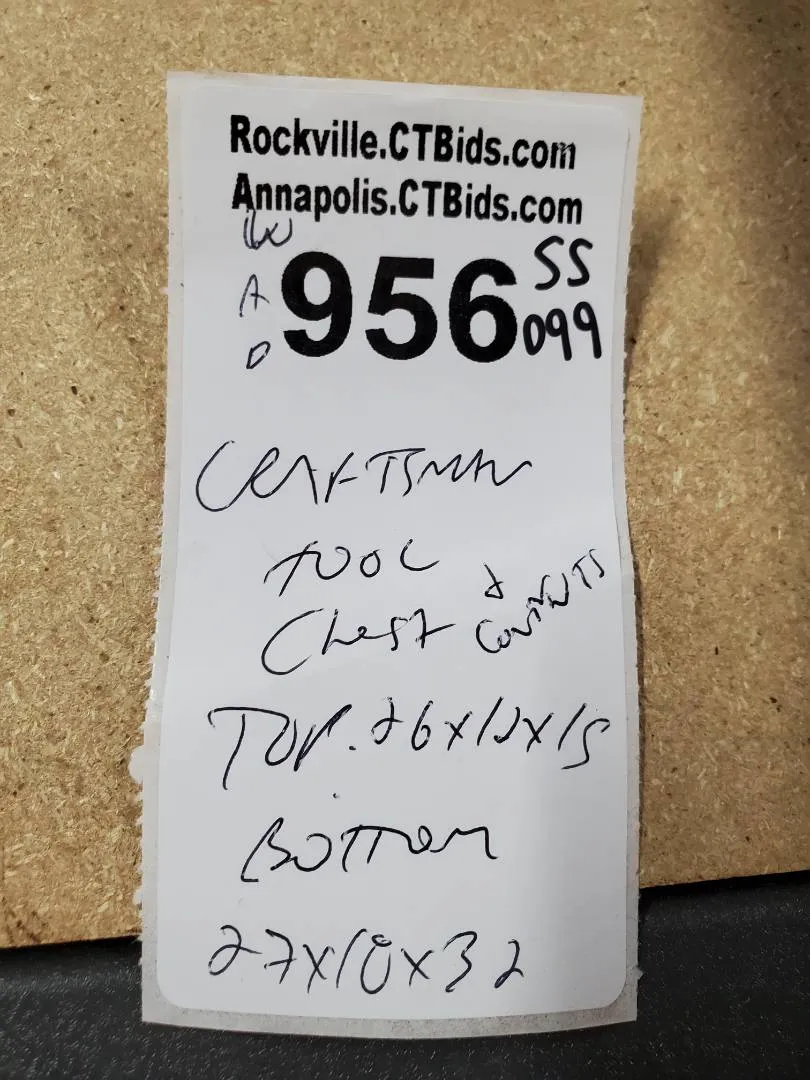 Rockville.CTBids.com
Annapolis.CTBids.com
W
A
D
956
SS
099
CRAFTSMAN
TOOL
Chest & CONTENTS
TOP. 26x12x15
BOTTOM
27x18x32